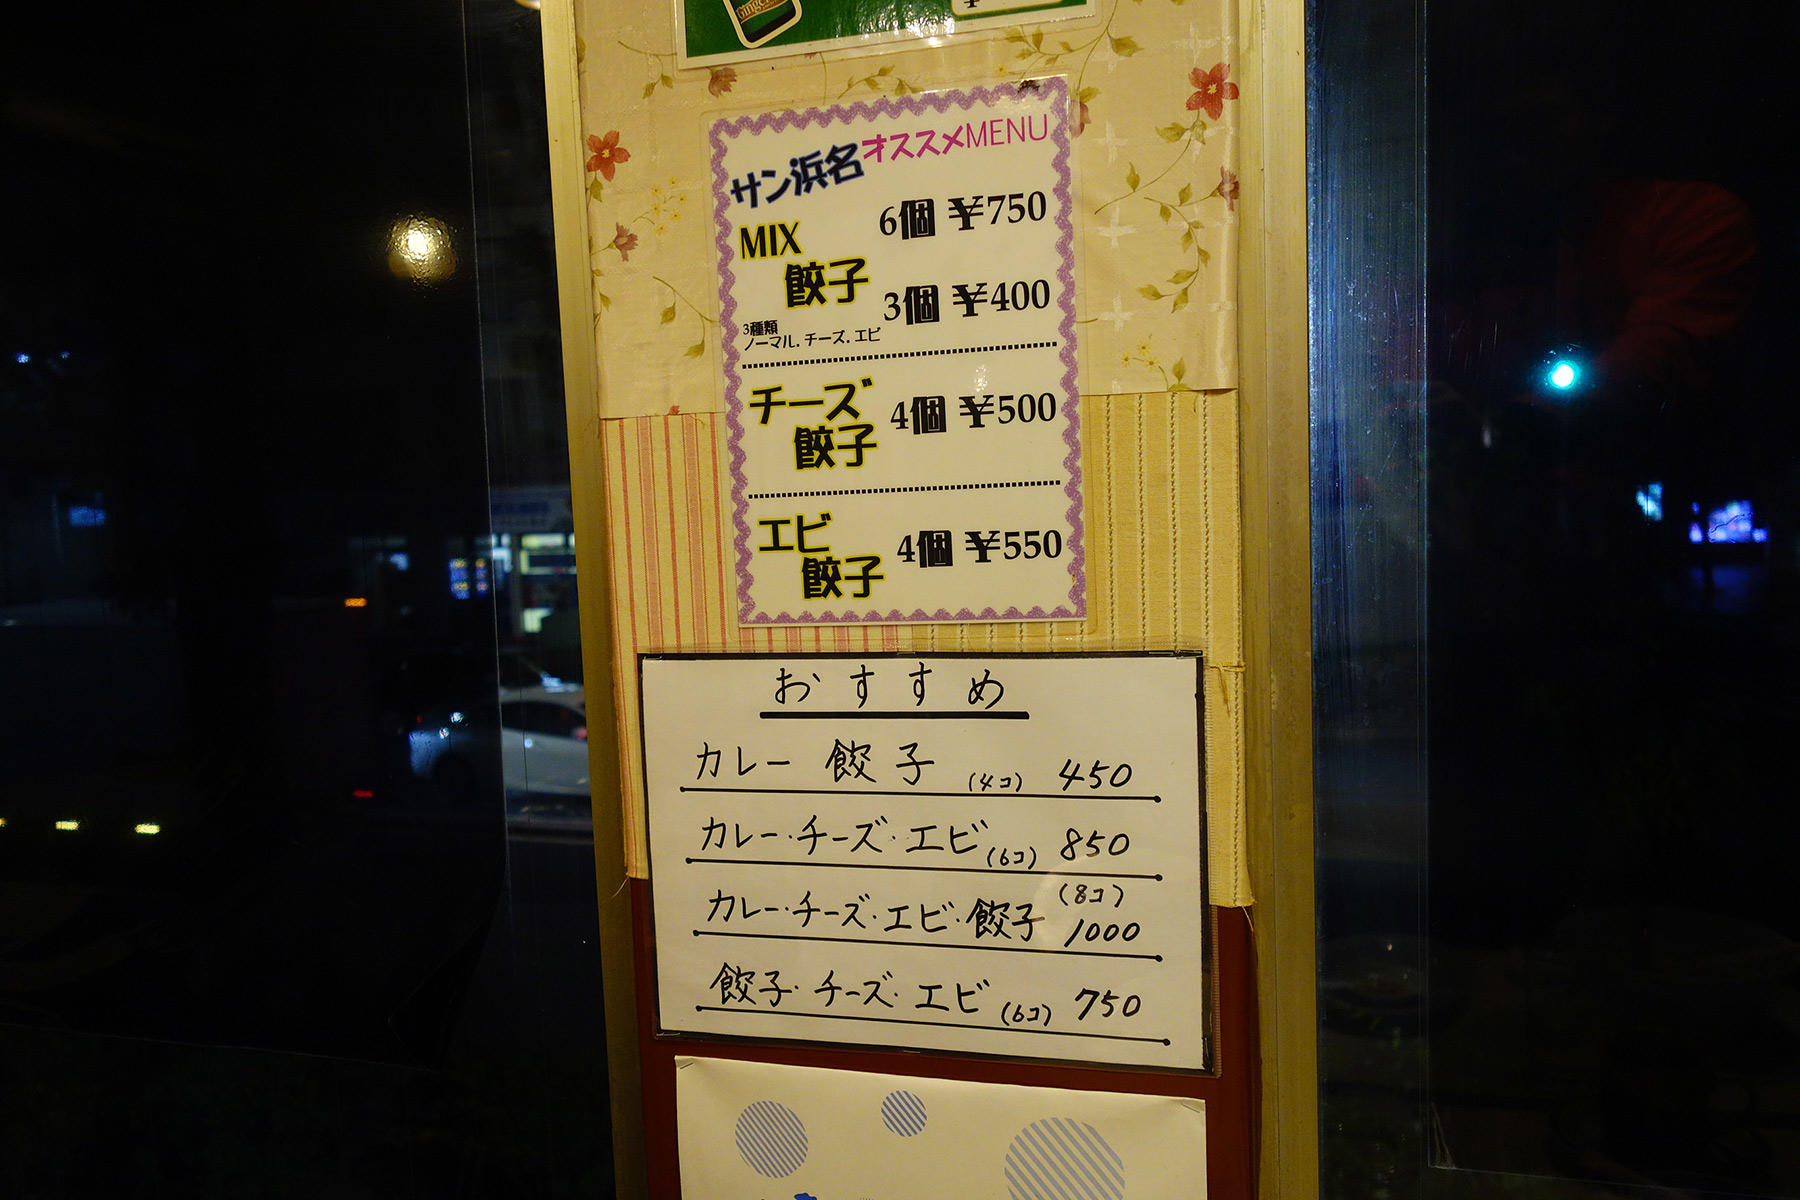 サン浜名オススメMENU
MIX
餃子
6個 ¥750
3個 ¥400
3種類
ノーマル.チーズ.エビ
チーズ
餃子
4個 ¥500
エビ
餃子
4個 ¥550
おすすめ
カレー 餃子 (4コ) 450
カレー・チーズ・エビ (6コ) 850
カレー・チーズ・エビ・餃子 (8コ) 1000
餃子・チーズ・エビ (6コ) 750